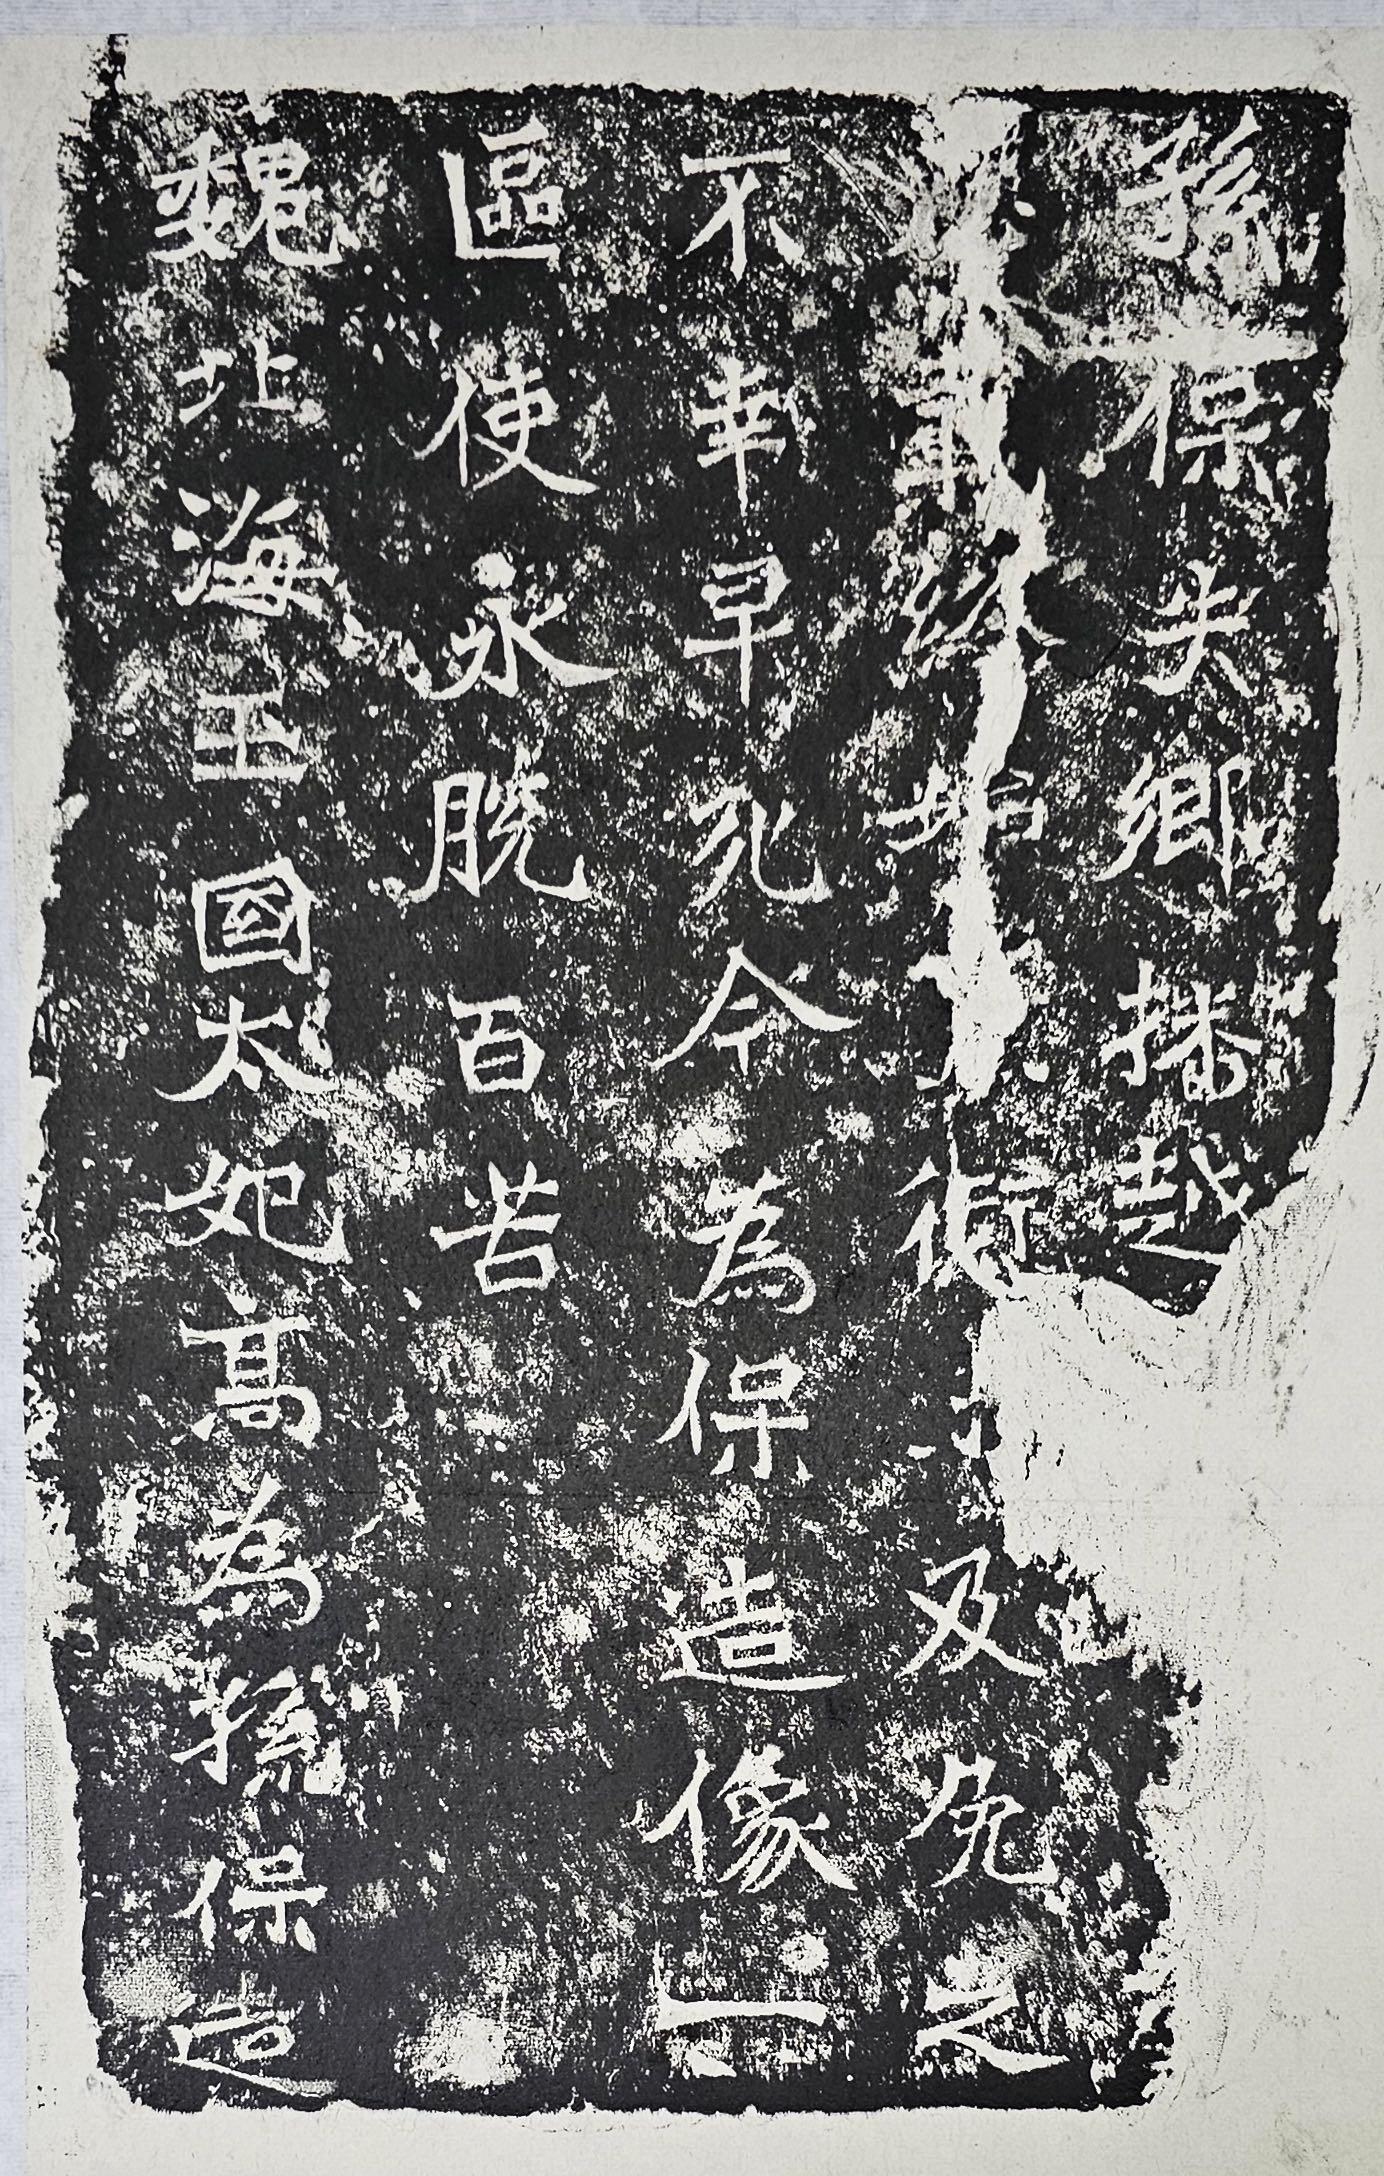 孫保失鄉播越
終始冥衘不及免之
不幸早死今為保造像一
區使永脱百苦
魏北海王國太妃高為孫保造